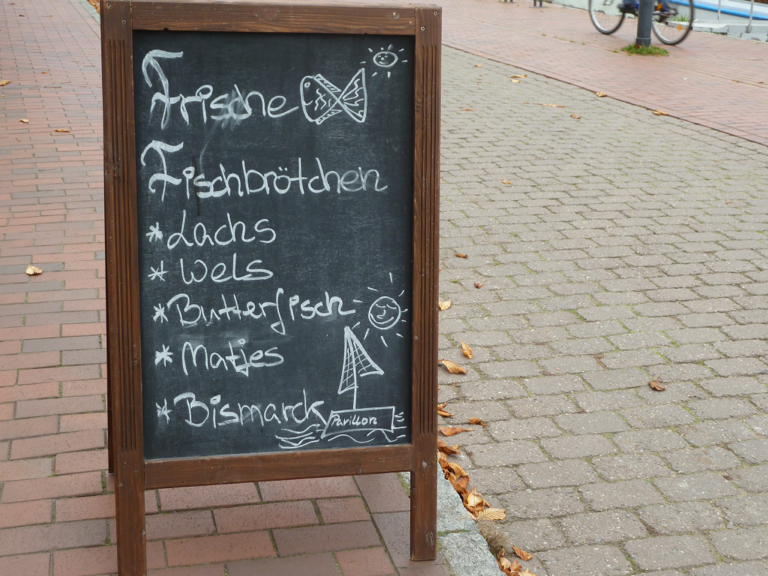 Frische
Fischbrötchen
* Lachs
* Wels
* Butterfisch
* Matjes
* Bismarck
Pavillon